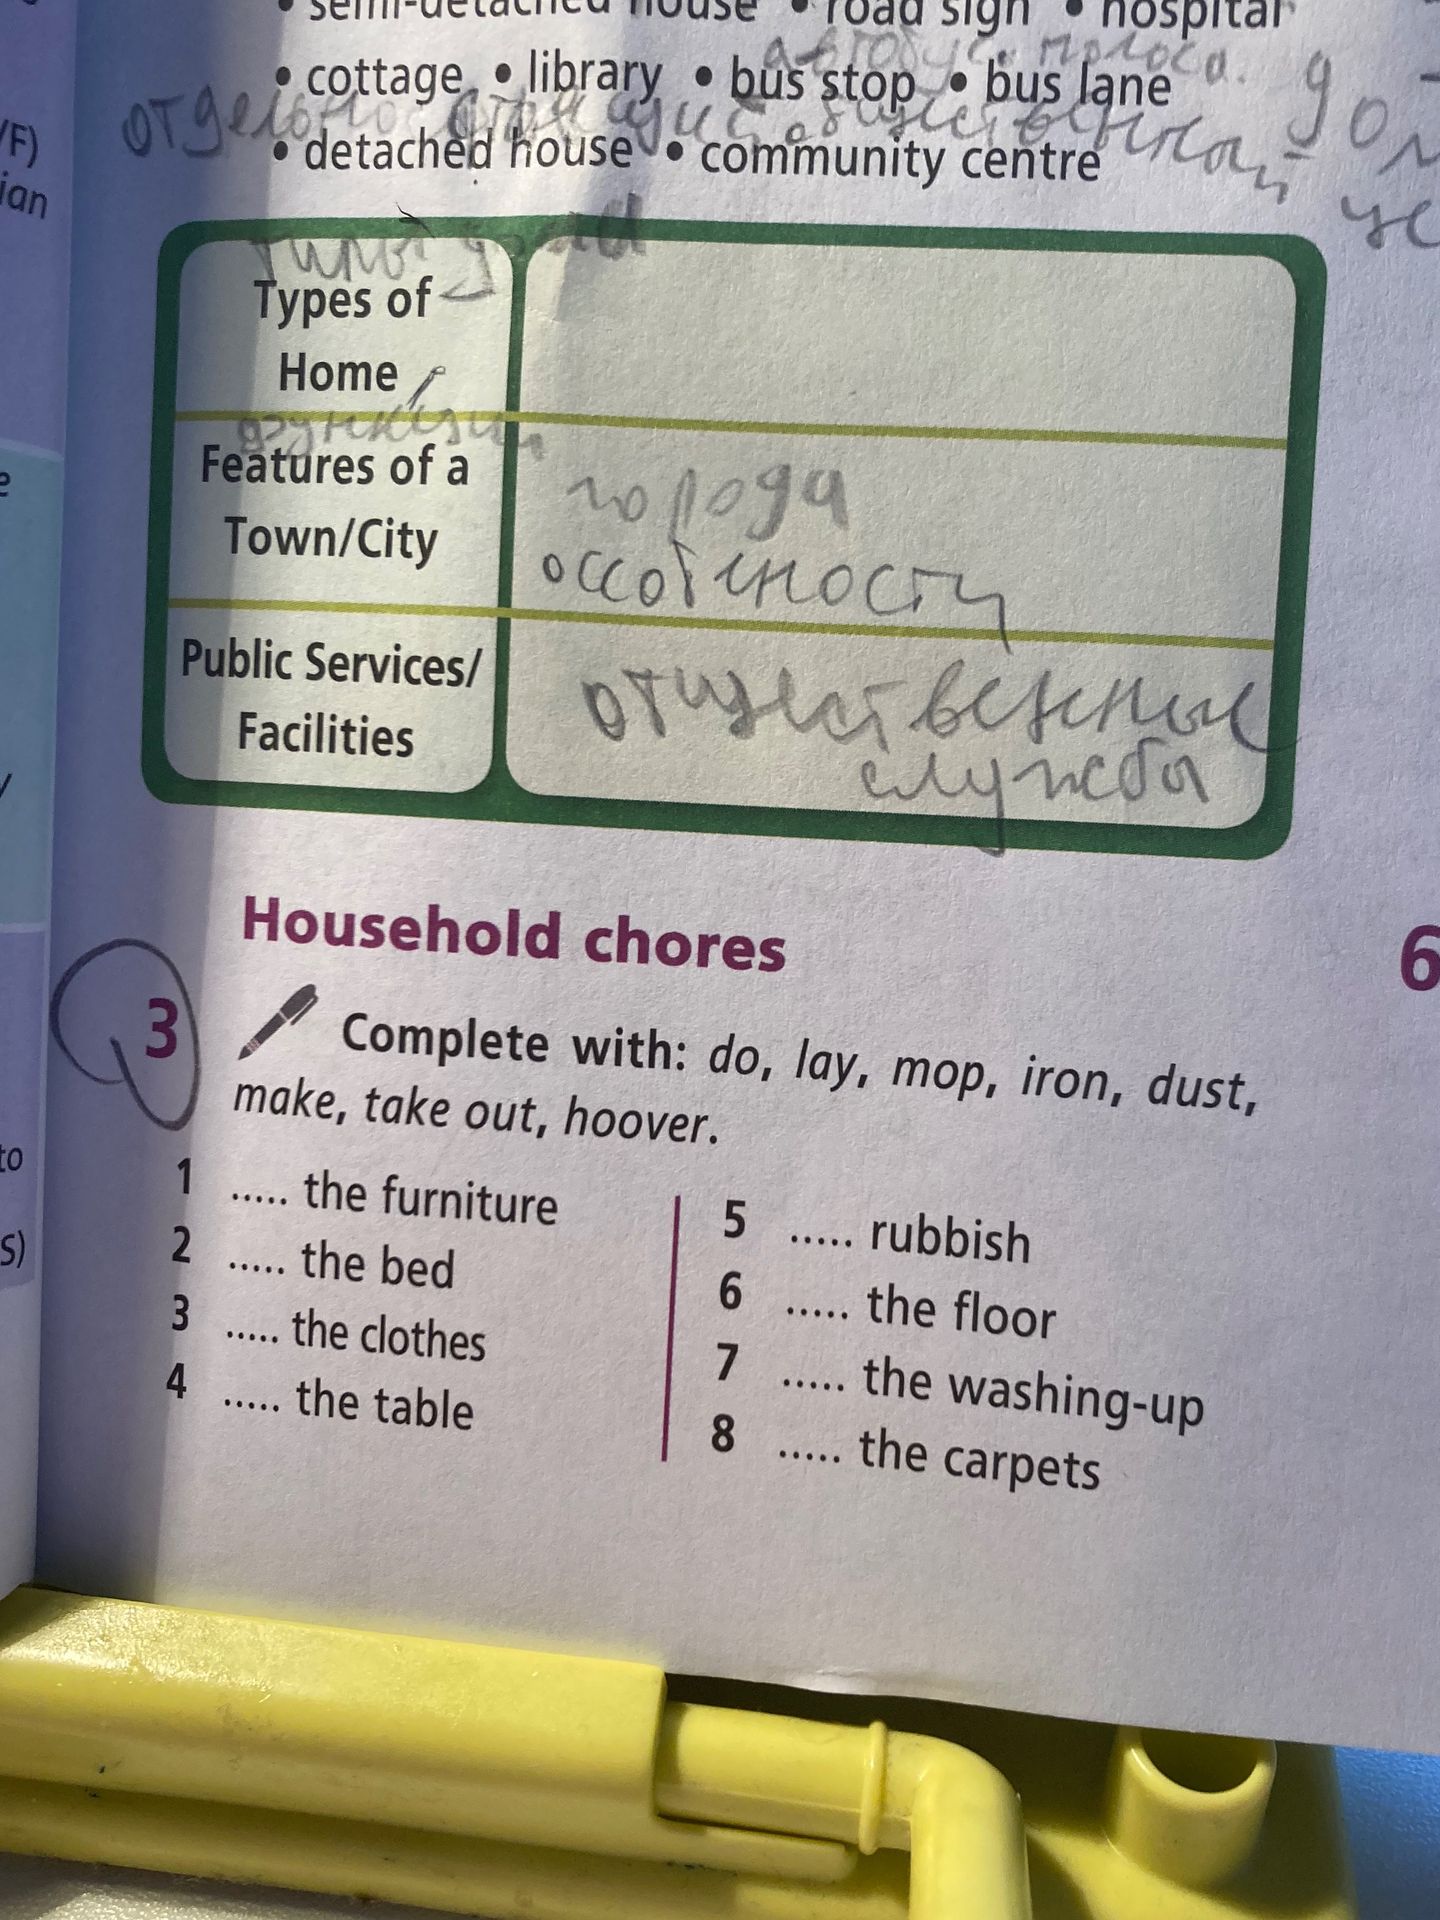 • semi-detached house • road sign • hospital
полоса.
• cottage • library • bus stop • bus lane
• detached house • community centre
/F)
ian
типы
Types of
Home
функции
Features of a
Town/City
города
Public Services/
Facilities
службы
Household chores
6
3 Complete with: do, lay, mop, iron, dust,
make, take out, hoover.
to
S)
1 ..... the furniture
2 ..... the bed
3 ..... the clothes
4 ..... the table
5 ..... rubbish
6 ..... the floor
7 ..... the washing-up
8 ..... the carpets